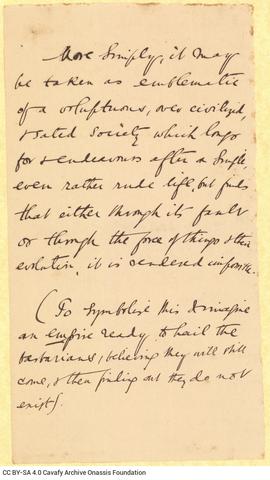 More simply, it may
be taken as emblematic
of a voluptuous, over civilized,
& sated society which longs
for & endeavours after a simple,
even rather rude life, but finds
that either through its fault
or through the force of things & their
evolution, it is rendered impossible.
(To symbolise this I imagine
an empire ready to hail the
barbarians, believing they will still
come, & then finding out they do not
exist).
CC BY-SA 4.0 Cavafy Archive Onassis Foundation